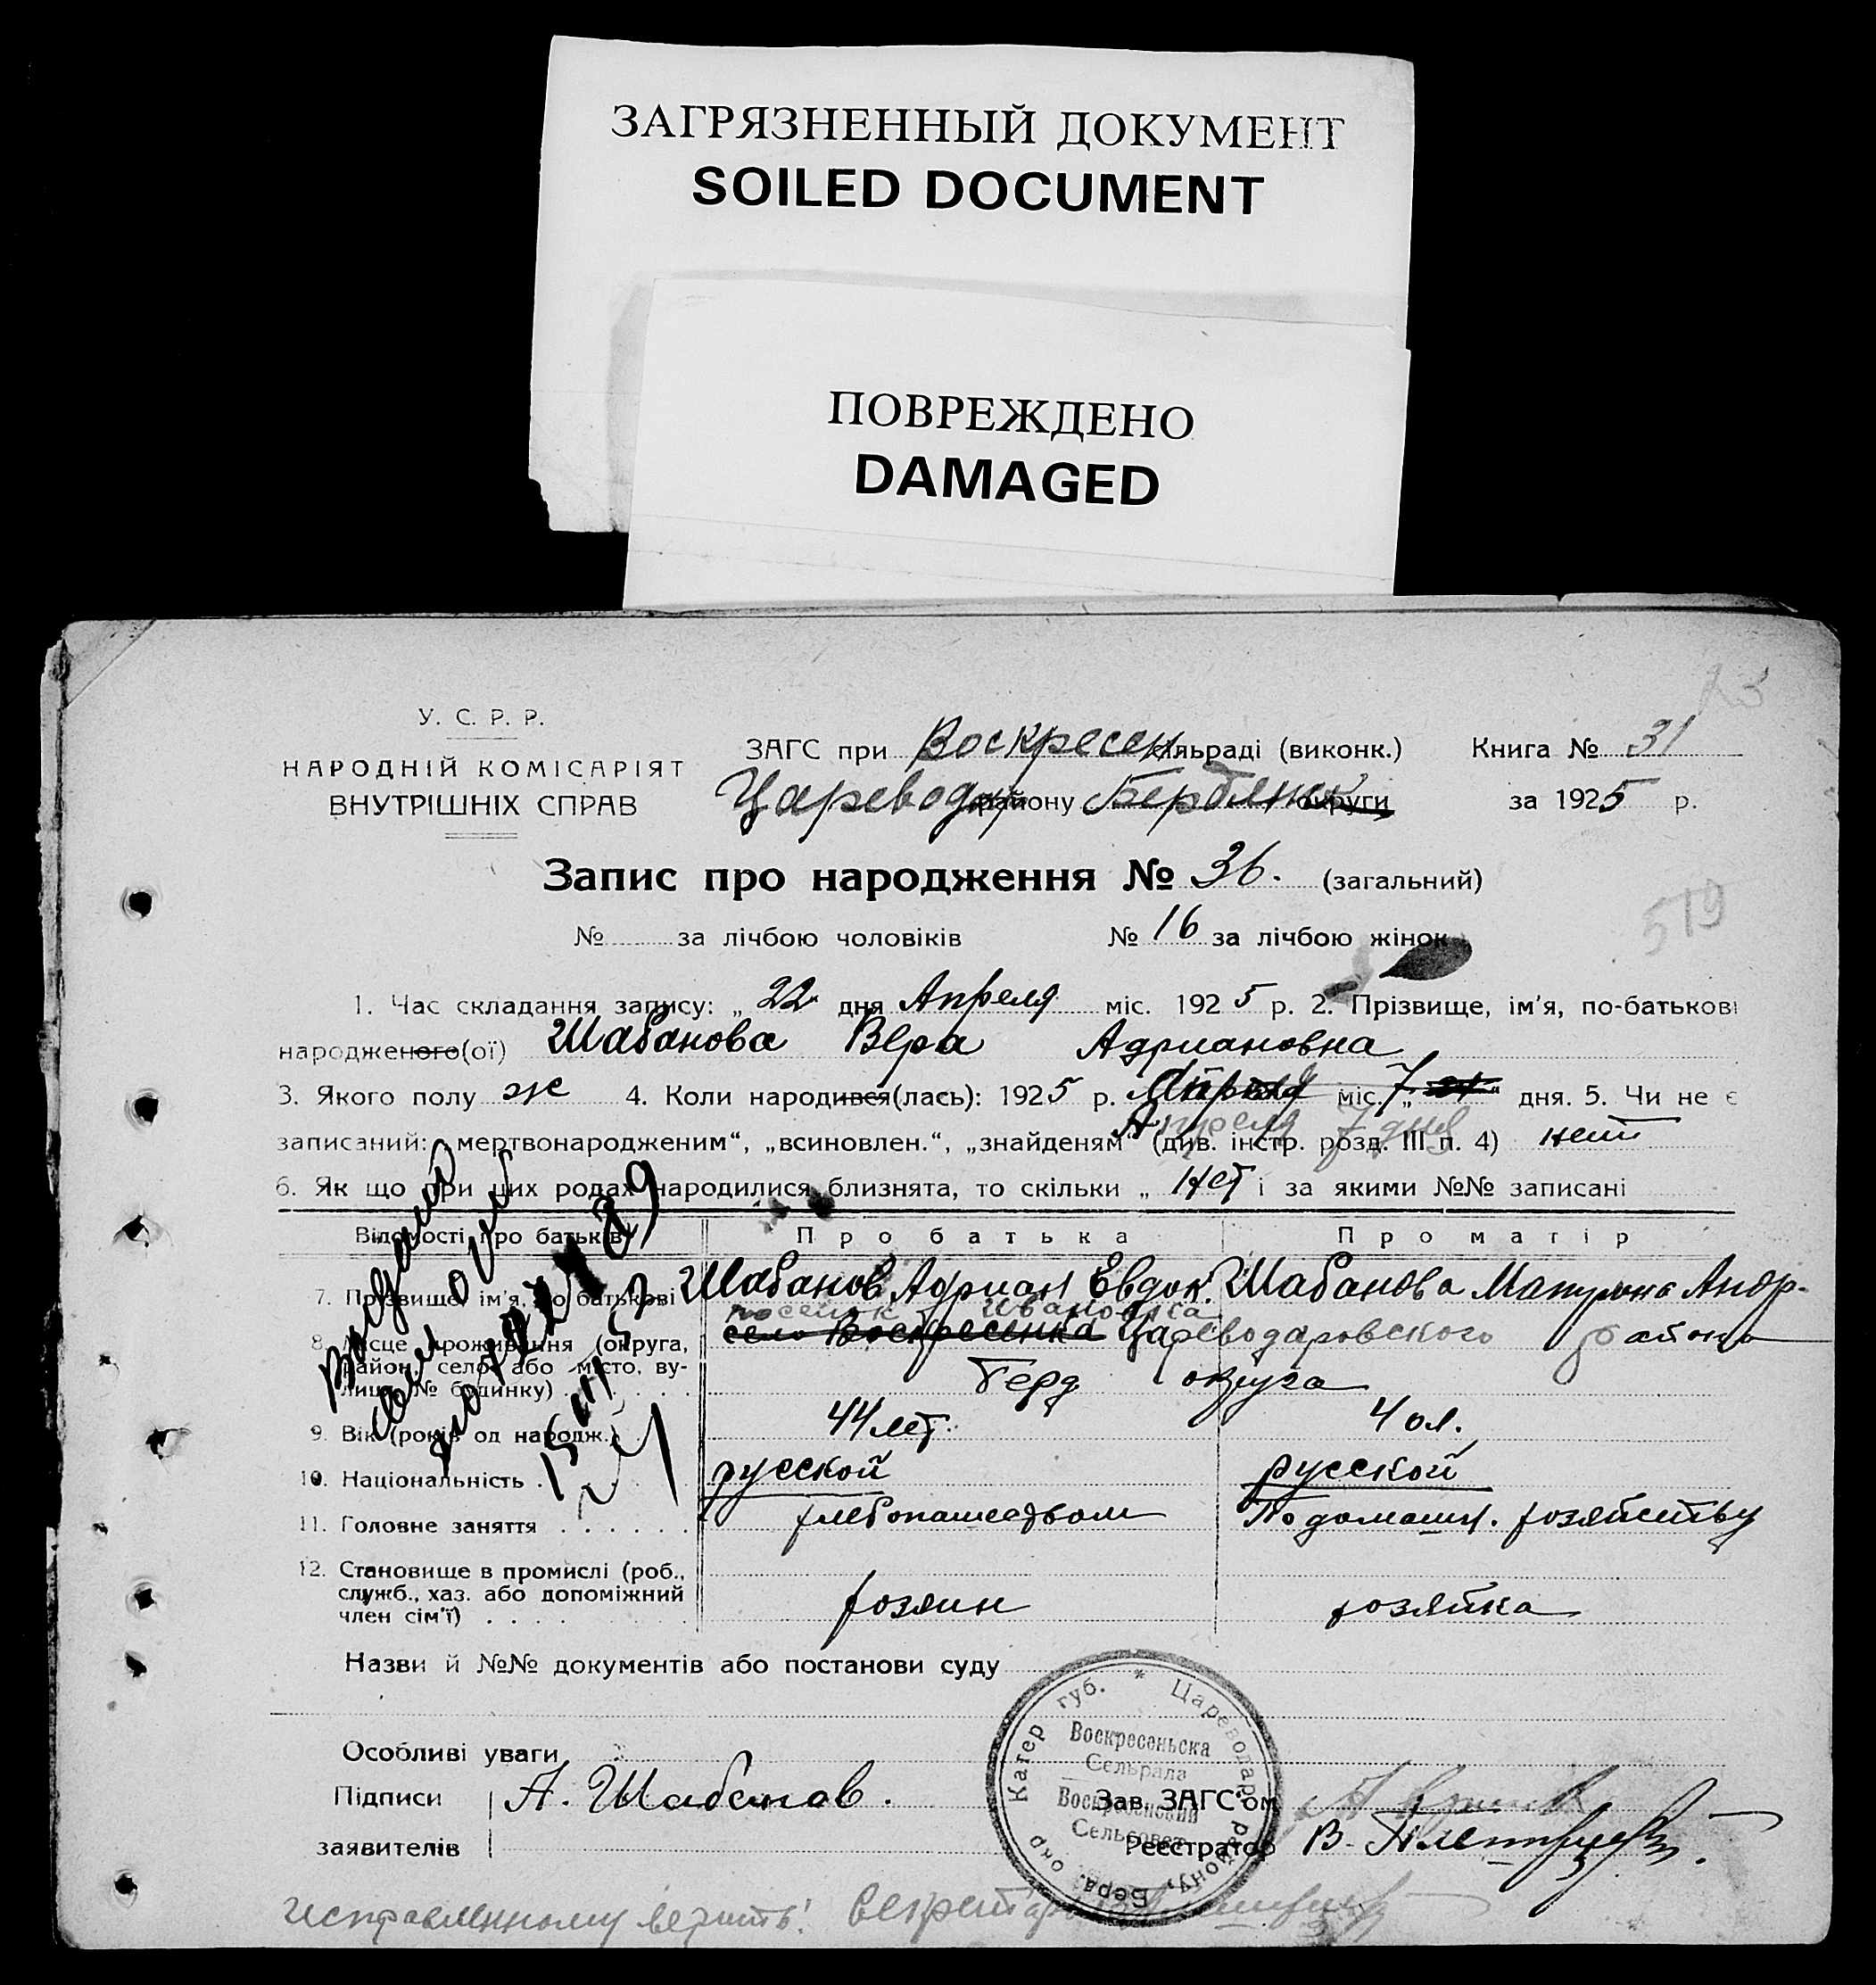 ЗАГРЯЗНЕННЫЙ ДОКУМЕНТ
SOILED DOCUMENT
ПОВРЕЖДЕНО
DAMAGED
23
У. С. Р. Р.
НАРОДНІЙ КОМІСАРІЯТ
ВНУТРІШНІХ СПРАВ
ЗАГС при Воскресен сільраді (виконк.) Книга № 31
Цареводр району Бердянск округи за 1925 р.
Запис про народження № 36. (загальний)
519
№ за лічбою чоловіків № 16 за лічбою жінок
1. Час складання запису: „ 22 дня Апреля міс. 1925 р. 2. Прізвище, ім'я, по-батькові
народженого(ої) Шабанова Вера Адриановна
3. Якого полу ж 4. Коли народився(лась): 1925 р. міс. 7 „ “ дня. 5. Чи не є
Апреля 7 дня
записаний: „мертвонародженим“, „всиновлен.“, „знайденям“ (див. інстр. розд. III п. 4) нет
6. Як що при цих родах народилися близнята, то скільки „ нет і за якими №№ записані
Відомості про батьків Про батька Про матір
7. Прізвище, ім'я, по батькові Шабанов Адриан Евдок. Шабанова Матрона Андр.
поселок Ивановка
8. Місце проживання (округа, район, село або місто, вулиця, № будинку) село Воскресенка Цареводаровского района
Берд округа
9. Вік (років од народж.) 44 лет. 40 л.
10. Національність русской русской
11. Головне заняття хлебопашеством По домашн. хозяйству
12. Становище в промислі (роб., служб., хаз. або допоміжний член сім'ї) хозяин хозяйка
Назви й №№ документів або постанови суду
Особливі уваги
Підписи А. Шабанов. Зав. ЗАГС'ом
заявителів Реєстратор В.
Катер губ. * Цареводар. району, Берд. окр
Воскресеньска
Сельрада
Воскресенский
Сельсовет
исправленному верить! Секретарь